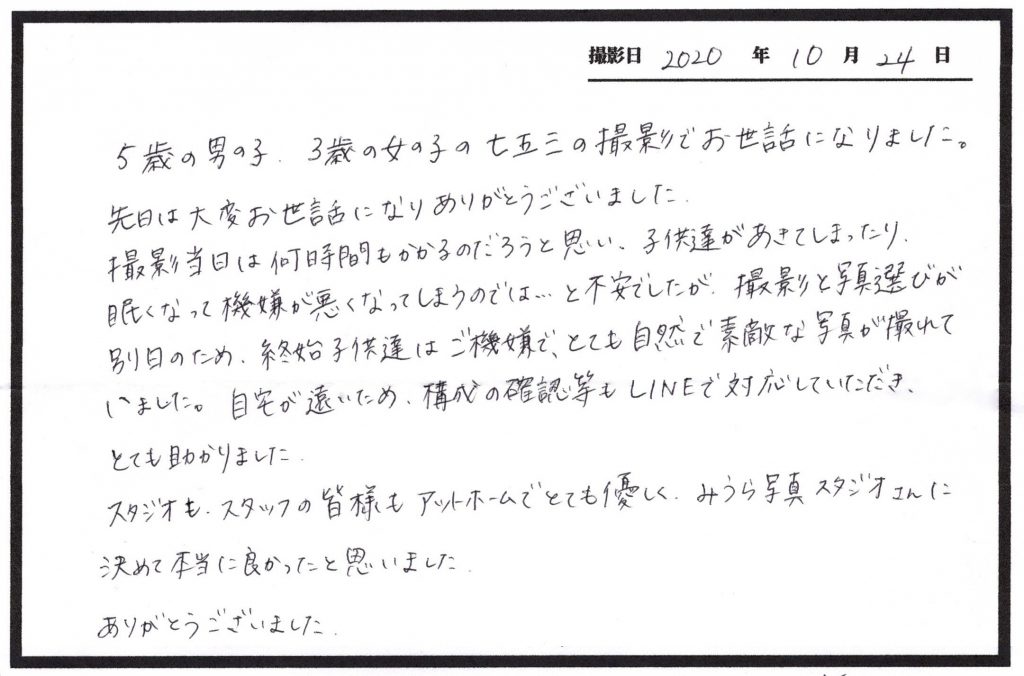 撮影日 2020 年 10 月 24 日
5歳の男の子、3歳の女の子の七五三の撮影でお世話になりました。
先日は大変お世話になりありがとうございました。
撮影当日は何時間もかかるのだろうと思い、子供達があきてしまったり、
眠くなって機嫌が悪くなってしまうのでは…と不安でしたが、撮影と写真選びが
別日のため、終始子供達はご機嫌で、とても自然で素敵な写真が撮れて
いました。自宅が遠いため、構成の確認等もLINEで対応していただき、
とても助かりました。
スタジオも、スタッフの皆様もアットホームでとても優しく、みうら写真スタジオさんに
決めて本当に良かったと思いました。
ありがとうございました。